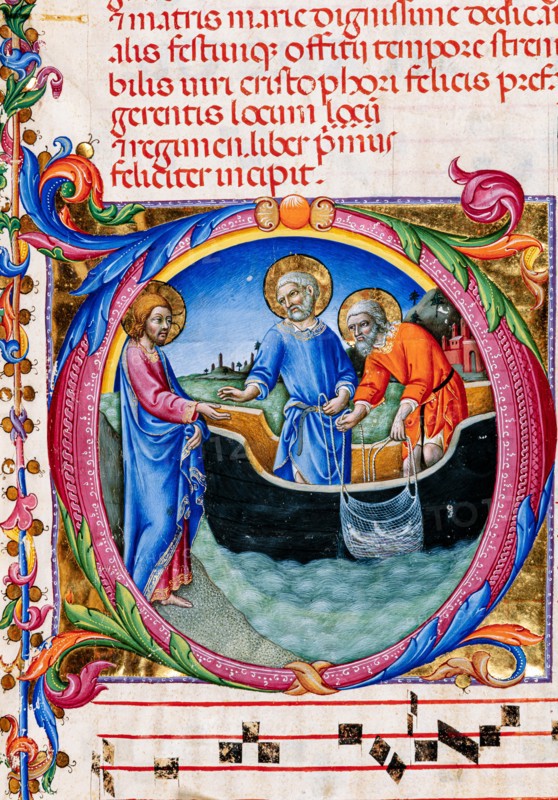 ⁊ matris marie dignissime dedica
alis festiuiqꝫ offitii tempore stren
bilis uiri cristophori felicis pref
gerentis locum locii
⁊ regimen. liber p̄mus
feliciter incipit.